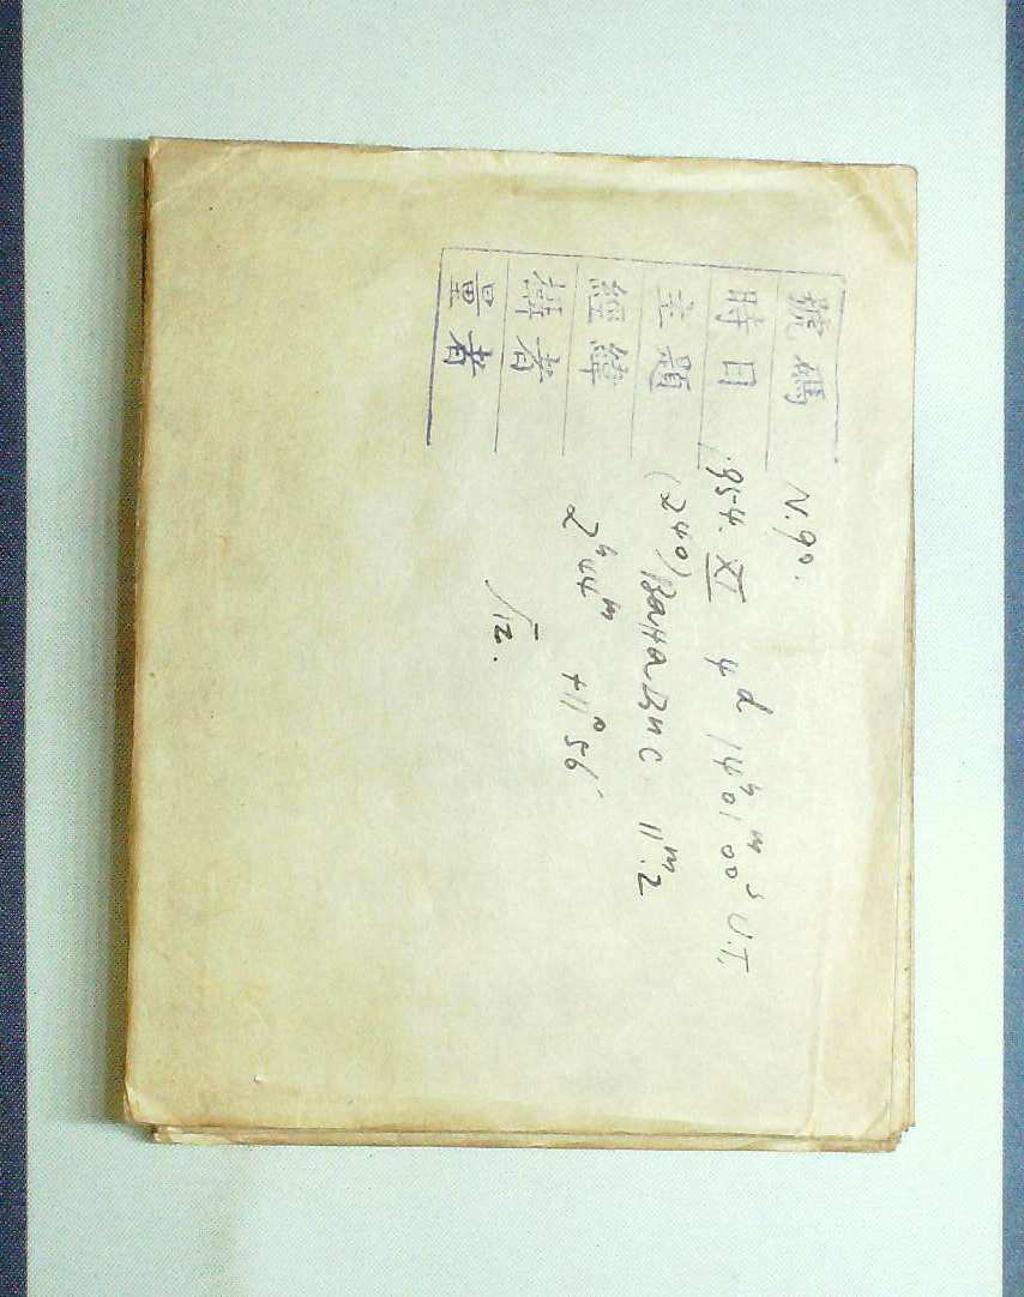 號碼 N.90.
時日 1954. XI 4d 14h01m00s U.T.
主題 (240) Ванадис 11m.2
經緯 2h44m +11°56′
攝者
量者